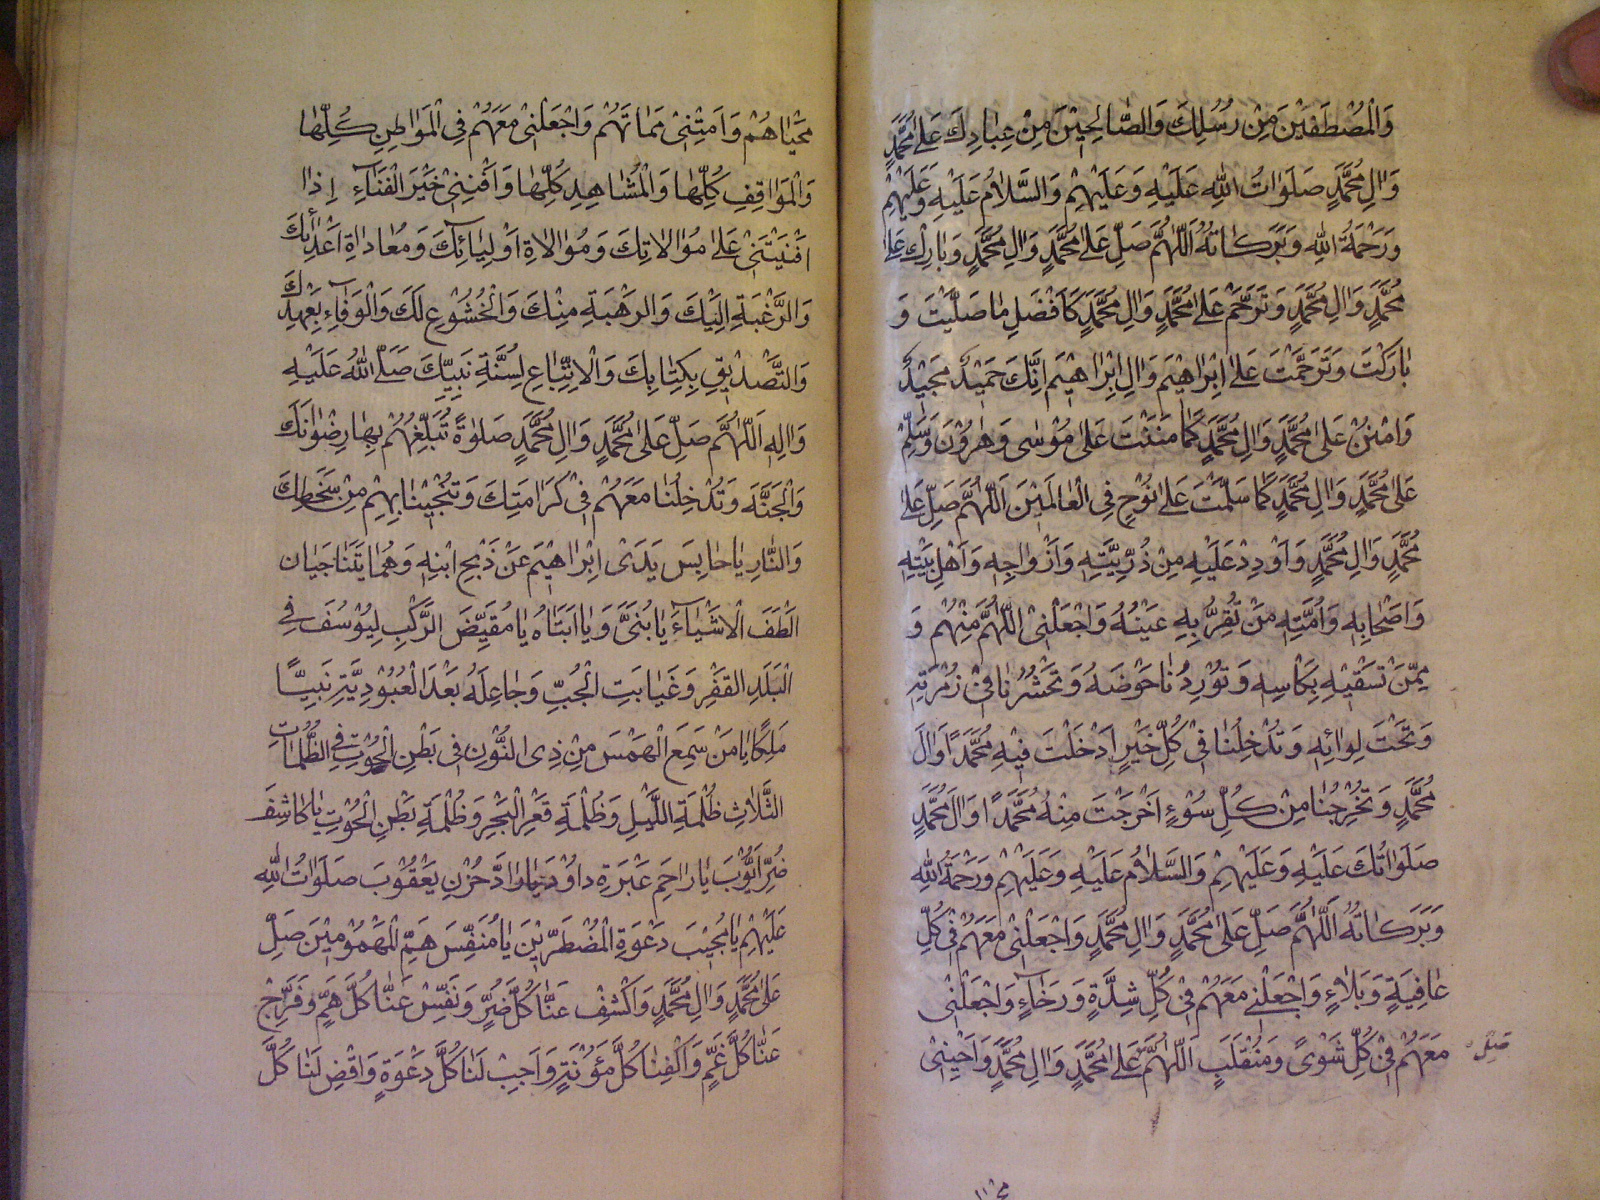 وَالْمُصْطَفَيْنَ مِنْ رُسُلِكَ وَالصَّالِحِيْنَ مِنْ عِبَادِكَ عَلىٰ مُحَمَّدٍ
وَاٰلِ مُحَمَّدٍ صَلَوَاتُ اللهِ عَلَيْهِ وَعَلَيْهِمْ وَالسَّلَامُ عَلَيْهِ وَعَلَيْهِمْ
وَرَحْمَةُ اللهِ وَبَرَكَاتُهُ اَللّٰهُمَّ صَلِّ عَلىٰ مُحَمَّدٍ وَاٰلِ مُحَمَّدٍ وَبَارِكْ عَلىٰ
مُحَمَّدٍ وَاٰلِ مُحَمَّدٍ وَتَرَحَّمْ عَلىٰ مُحَمَّدٍ وَاٰلِ مُحَمَّدٍ كَاَفْضَلِ مَا صَلَّيْتَ وَ
بَارَكْتَ وَتَرَحَّمْتَ عَلىٰ اِبْرَاهِيْمَ وَاٰلِ اِبْرَاهِيْمَ اِنَّكَ حَمِيْدٌ مَجِيْدٌ
وَامْنُنْ عَلىٰ مُحَمَّدٍ وَاٰلِ مُحَمَّدٍ كَمَا مَنَنْتَ عَلىٰ مُوْسٰى وَهٰرُوْنَ وَسَلِّمْ
عَلىٰ مُحَمَّدٍ وَاٰلِ مُحَمَّدٍ كَمَا سَلَّمْتَ عَلىٰ نُوْحٍ فِى الْعَالَمِيْنَ اَللّٰهُمَّ صَلِّ عَلىٰ
مُحَمَّدٍ وَاٰلِ مُحَمَّدٍ وَاَوْرِدْ عَلَيْهِ مِنْ ذُرِّيَّتِهِ وَاَزْوَاجِهِ وَاَهْلِ بَيْتِهِ
وَاَصْحَابِهِ وَاُمَّتِهِ مَنْ تُقِرُّ بِهِ عَيْنُهُ وَاجْعَلْنِى اللّٰهُمَّ مِنْهُمْ وَ
مِمَّنْ تَسْقِيْهِ بِكَاْسِهِ وَتُوْرِدُنَا حَوْضَهُ وَتَحْشُرُنَا فِىْ زُمْرَتِهِ
وَتَحْتَ لِوَائِهِ وَتُدْخِلُنَا فِىْ كُلِّ خَيْرٍ اَدْخَلْتَ فِيْهِ مُحَمَّدًا وَاٰلَ
مُحَمَّدٍ وَتُخْرِجُنَا مِنْ كُلِّ سُوْءٍ اَخْرَجْتَ مِنْهُ مُحَمَّدًا وَاٰلَ مُحَمَّدٍ
صَلَوَاتُكَ عَلَيْهِ وَعَلَيْهِمْ وَالسَّلَامُ عَلَيْهِ وَعَلَيْهِمْ وَرَحْمَةُ اللهِ
وَبَرَكَاتُهُ اَللّٰهُمَّ صَلِّ عَلىٰ مُحَمَّدٍ وَاٰلِ مُحَمَّدٍ وَاجْعَلْنِىْ مَعَهُمْ فِىْ كُلِّ
عَافِيَةٍ وَبَلَاءٍ وَاجْعَلْنِىْ مَعَهُمْ فِىْ كُلِّ شِدَّةٍ وَرَخَاءٍ وَاجْعَلْنِىْ
مَعَهُمْ فِىْ كُلِّ مَثْوًى وَمُنْقَلَبٍ اَللّٰهُمَّ عَلىٰ مُحَمَّدٍ وَاٰلِ مُحَمَّدٍ وَاَحْيِنِىْ
صَلِّ
مَحْيَاهُمْ وَاَمِتْنِىْ مَمَاتَهُمْ وَاجْعَلْنِىْ مَعَهُمْ فِى الْمَوَاطِنِ كُلِّهَا
وَالْمَوَاقِفِ كُلِّهَا وَالْمَشَاهِدِ كُلِّهَا وَاَفْنِنِىْ خَيْرَ الْفَنَاءِ اِذَا
اَفْنَيْتَنِىْ عَلىٰ مُوَالَاتِكَ وَمُوَالَاةِ اَوْلِيَائِكَ وَمُعَادَاةِ اَعْدَائِكَ
وَالرَّغْبَةِ اِلَيْكَ وَالرَهْبَةِ مِنْكَ وَالْخُشُوْعِ لَكَ وَالْوَفَاءِ بِعَهْدِكَ
وَالتَّصْدِيْقِ بِكِتَابِكَ وَالْاِتِّبَاعِ لِسُنَّةِ نَبِيِّكَ صَلَّى اللهُ عَلَيْهِ
وَاٰلِهِ اَللّٰهُمَّ صَلِّ عَلىٰ مُحَمَّدٍ وَاٰلِ مُحَمَّدٍ صَلٰوةً تُبَلِّغُهُمْ بِهَا رِضْوَانَكَ
وَالْجَنَّةَ وَتُدْخِلُنَا مَعَهُمْ فِىْ كَرَامَتِكَ وَتُنْجِيْنَا بِهِمْ مِنْ سَخَطِكَ
وَالنَّارِ يَا حَابِسَ يَدَىْ اِبْرَاهِيْمَ عَنْ ذَبْحِ ابْنِهِ وَهُمَا يَتَنَاجَيَانِ
اَلْطَفَ الْاَشْيَاءَ يَا بُنَىَّ وَيَا اَبَتَاهُ يَا مُقَيِّضَ الرَّكْبِ لِيُوْسُفَ فِى
الْبَلَدِ القَفْرِ وَغَيَابَتِ الْجُبِّ وَجَاعِلَهُ بَعْدَ الْعُبُوْدِيَّةِ نَبِيًّا
مَلِكًا يَا مَنْ سَمِعَ الْهَمْسَ مِنْ ذِى النُّوْنِ فِى بَطْنِ الْحُوْتِ فِى الظُّلُمَاتِ
الثَّلَاثِ ظُلْمَةِ اللَّيْلِ وَظُلْمَةِ قَعْرِ الْبَحْرِ وَظُلْمَةِ بَطْنِ الْحُوْتِ يَا كَاشِفَ
ضُرِّ اَيُّوْبَ يَا رَاحِمَ عَبْرَةِ دَاوُدَ يَا رَادَّ حُزْنِ يَعْقُوْبَ صَلَوَاتُ اللهِ
عَلَيْهِمْ يَا مُجِيْبَ دَعْوَةِ الْمُضْطَرِّيْنَ يَا مُنَفِّسَ هَمِّ الْمَهْمُوْمِيْنَ صَلِّ
عَلىٰ مُحَمَّدٍ وَاٰلِ مُحَمَّدٍ وَاكْشِفْ عَنَّا كُلَّ ضُرٍّ وَنَفِّسْ عَنَّا كُلَّ هَمٍّ وَفَرِّجْ
عَنَّا كُلَّ غَمٍّ وَاكْفِنَا كُلَّ مَؤُنَةٍ وَاَجِبْ لَنَا كُلَّ دَعْوَةٍ وَاقْضِ لَنَا كُلَّ